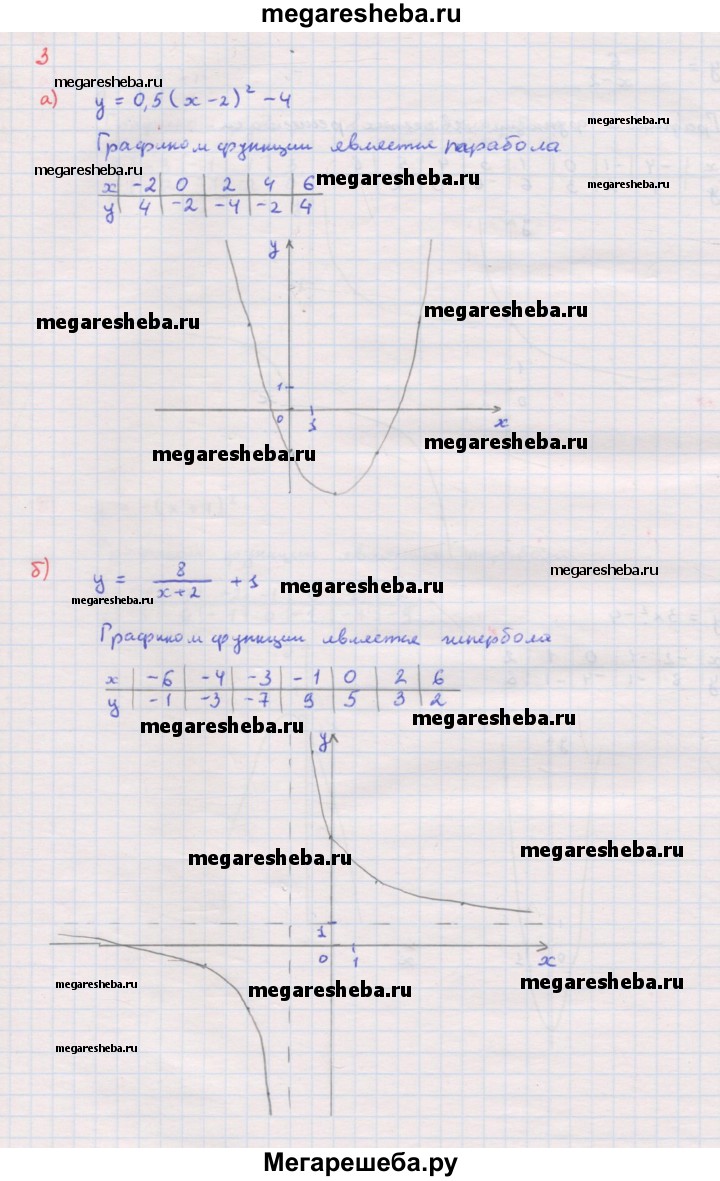 megaresheba.ru
3
megaresheba.ru
а) y = 0,5 (x - 2)² - 4
megaresheba.ru
Графиком функции является парабола
megaresheba.ru
megaresheba.ru
megaresheba.ru
x -2 0 2 4 6
y 4 -2 -4 -2 4
y
megaresheba.ru
megaresheba.ru
1
0 1 x
megaresheba.ru
megaresheba.ru
б) y = 8/(x+2) + 1
megaresheba.ru
megaresheba.ru
megaresheba.ru
Графиком функции является гипербола
x -6 -4 -3 -1 0 2 6
y -1 -3 -7 9 5 3 2
megaresheba.ru
megaresheba.ru
y
megaresheba.ru
megaresheba.ru
1
0 1 x
megaresheba.ru
megaresheba.ru
megaresheba.ru
megaresheba.ru
Мегарешеба.ру